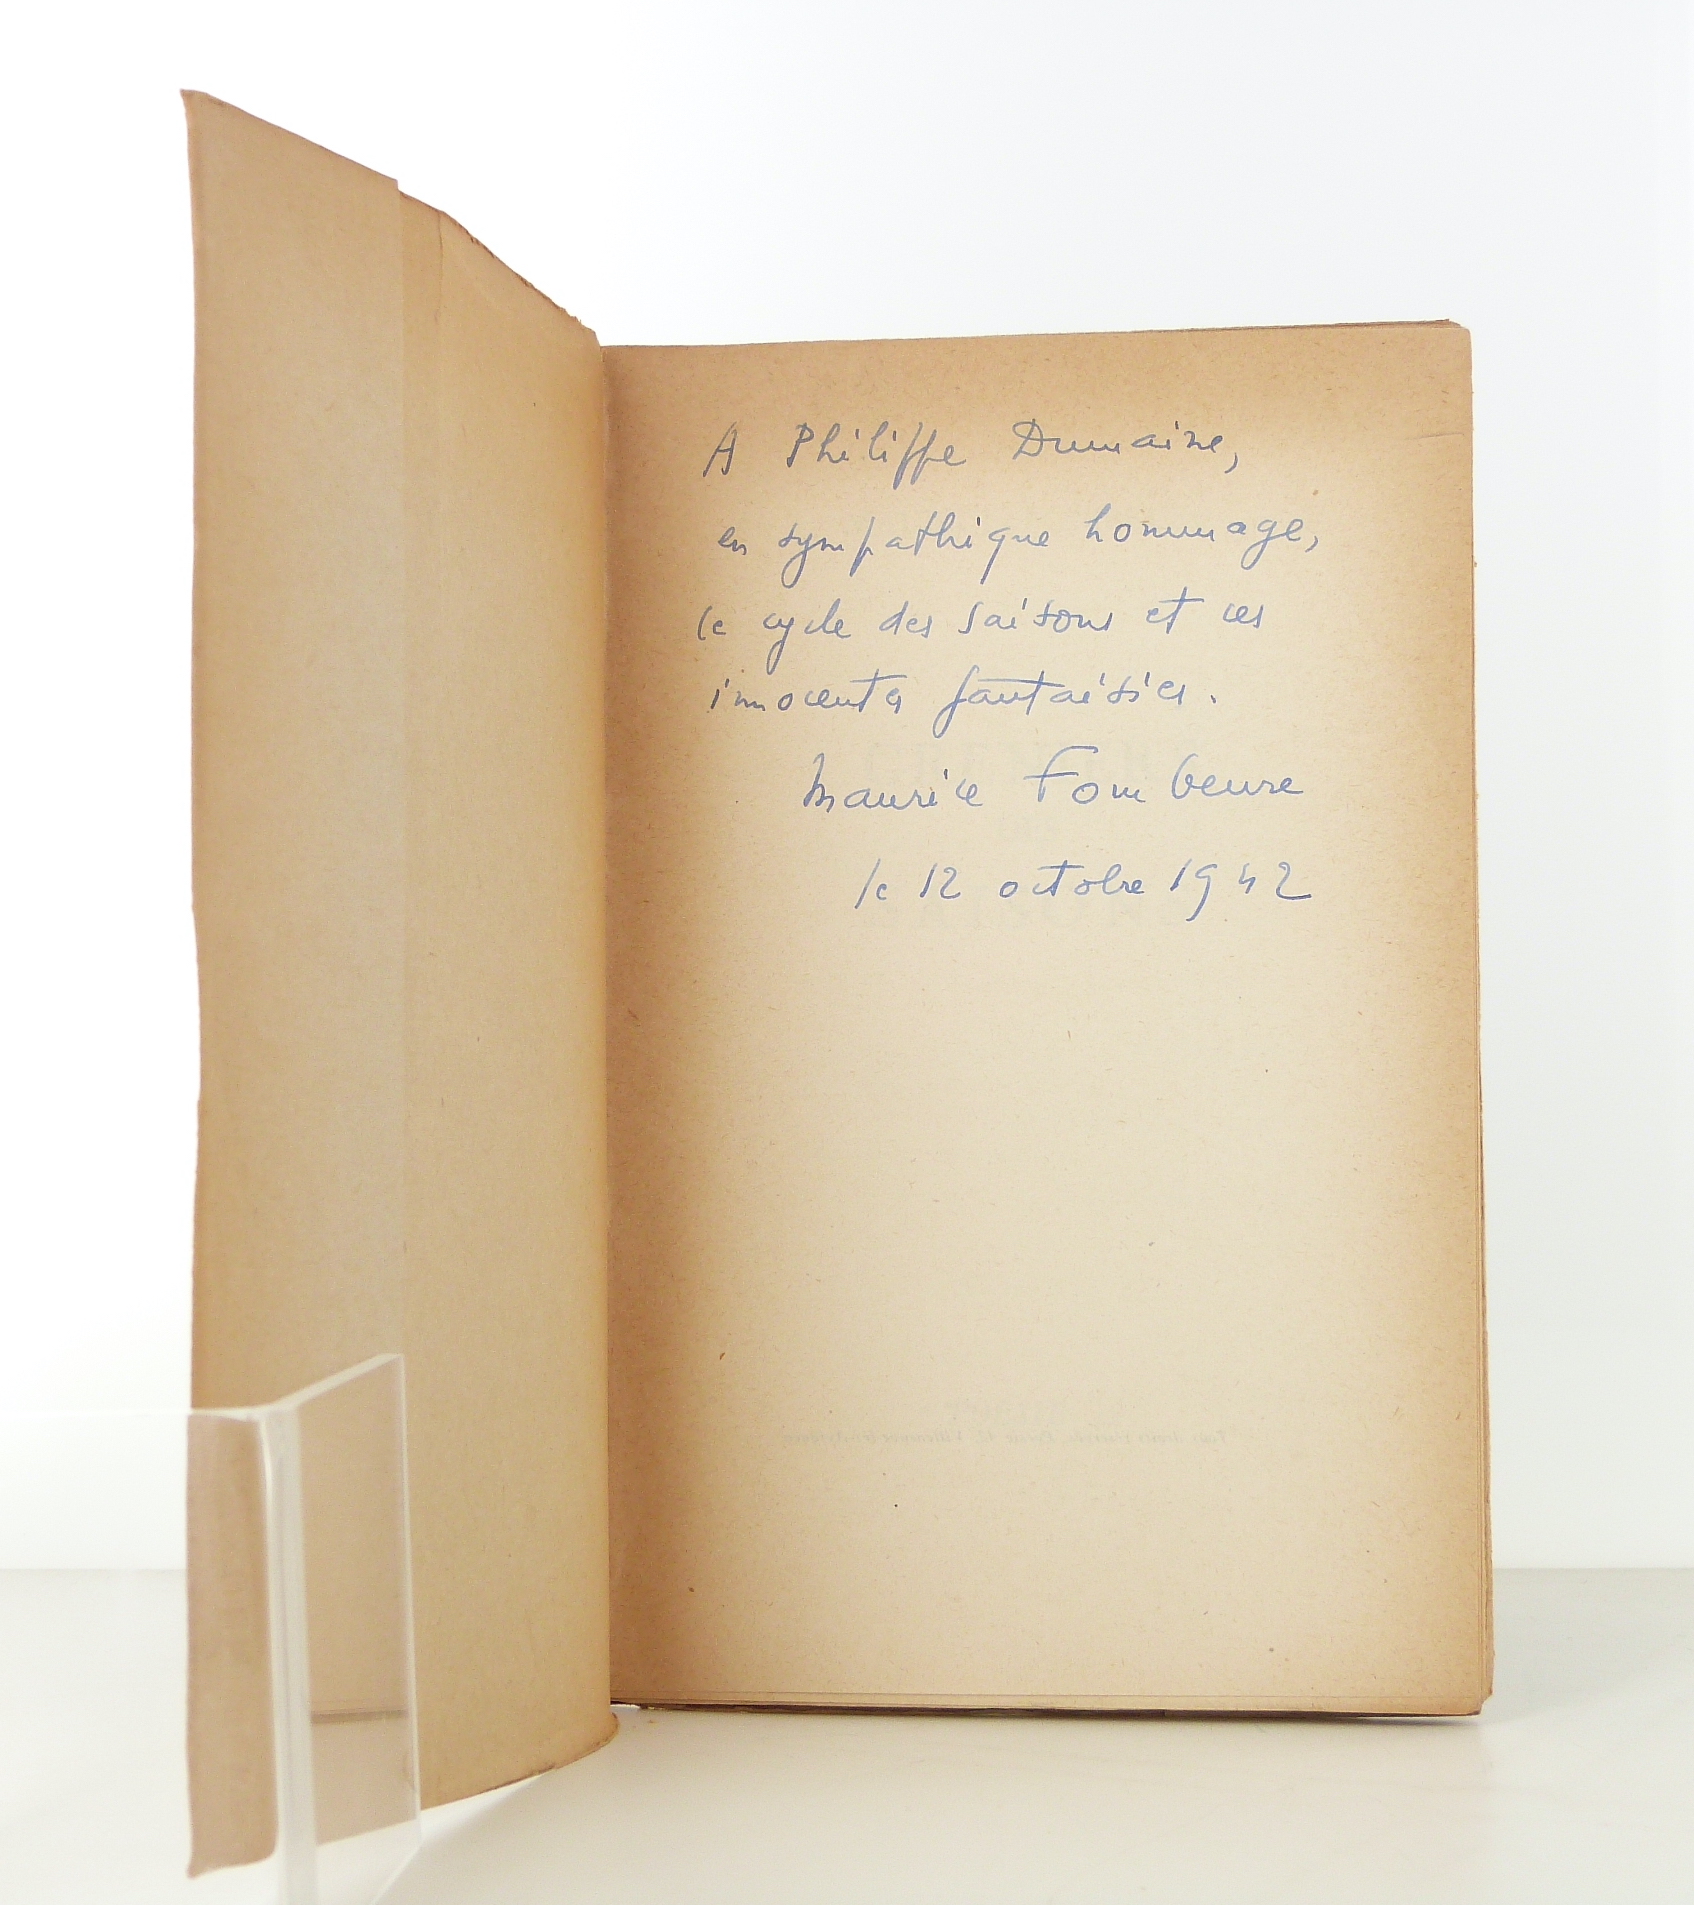 A Philippe Dumaine,
en sympathique hommage,
le cycle des saisons et ces
innocentes fantaisies.
Maurice Fombeure
le 12 octobre 1942